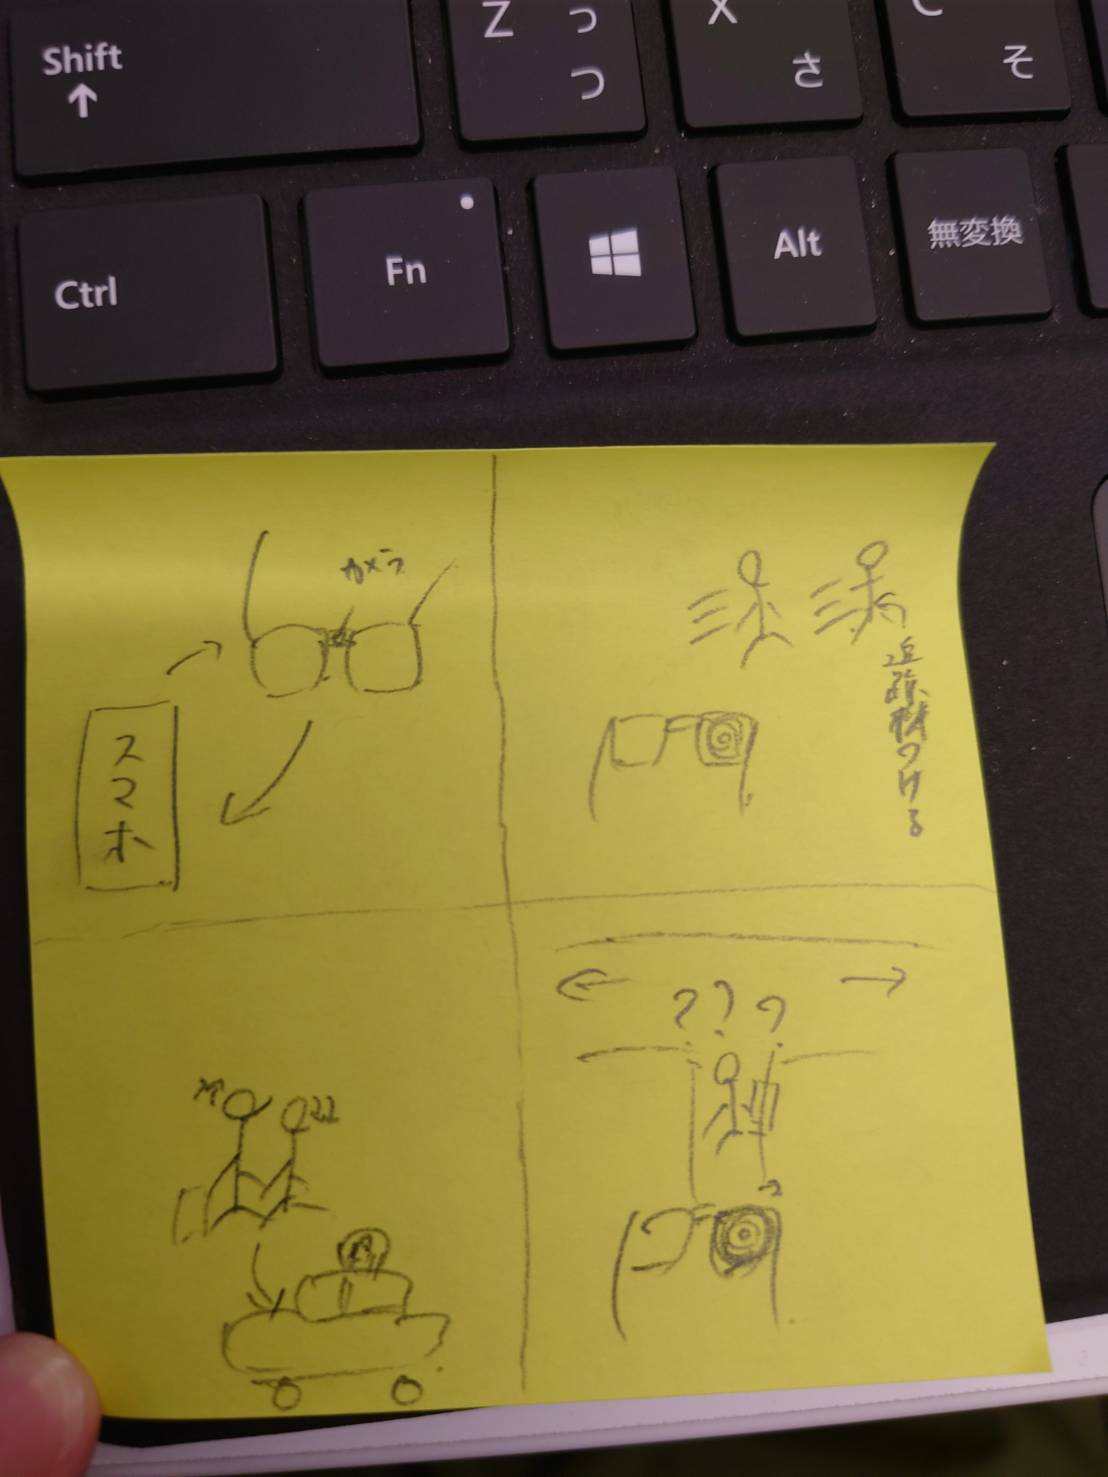 Shift
↑
Z っ
つ
X
さ
C
そ
Ctrl
Fn
Alt
無変換
カメラ
スマホ
つける
???